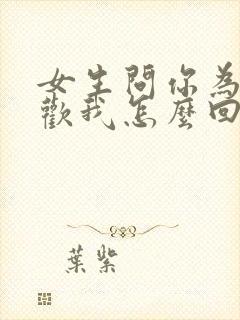 女生問你為
歡我怎麼回
葉紫